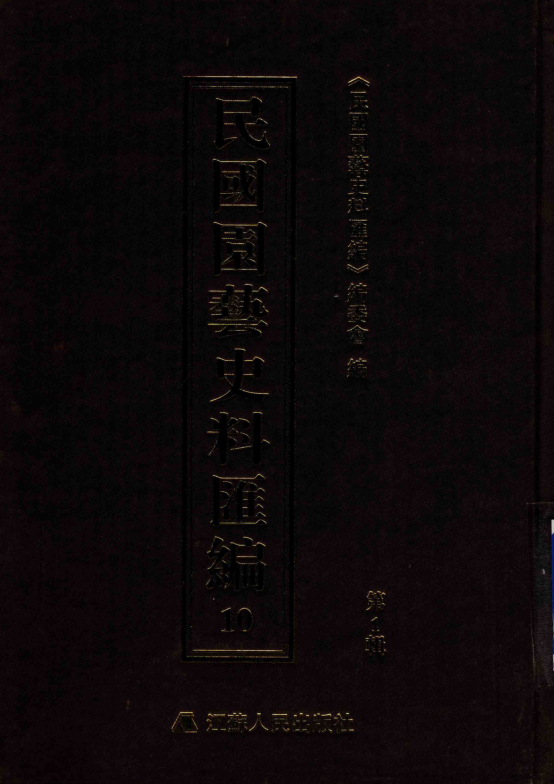 《民國園藝史料匯編》編委會 編
民國園藝史料匯編 10
第1輯
江蘇人民出版社